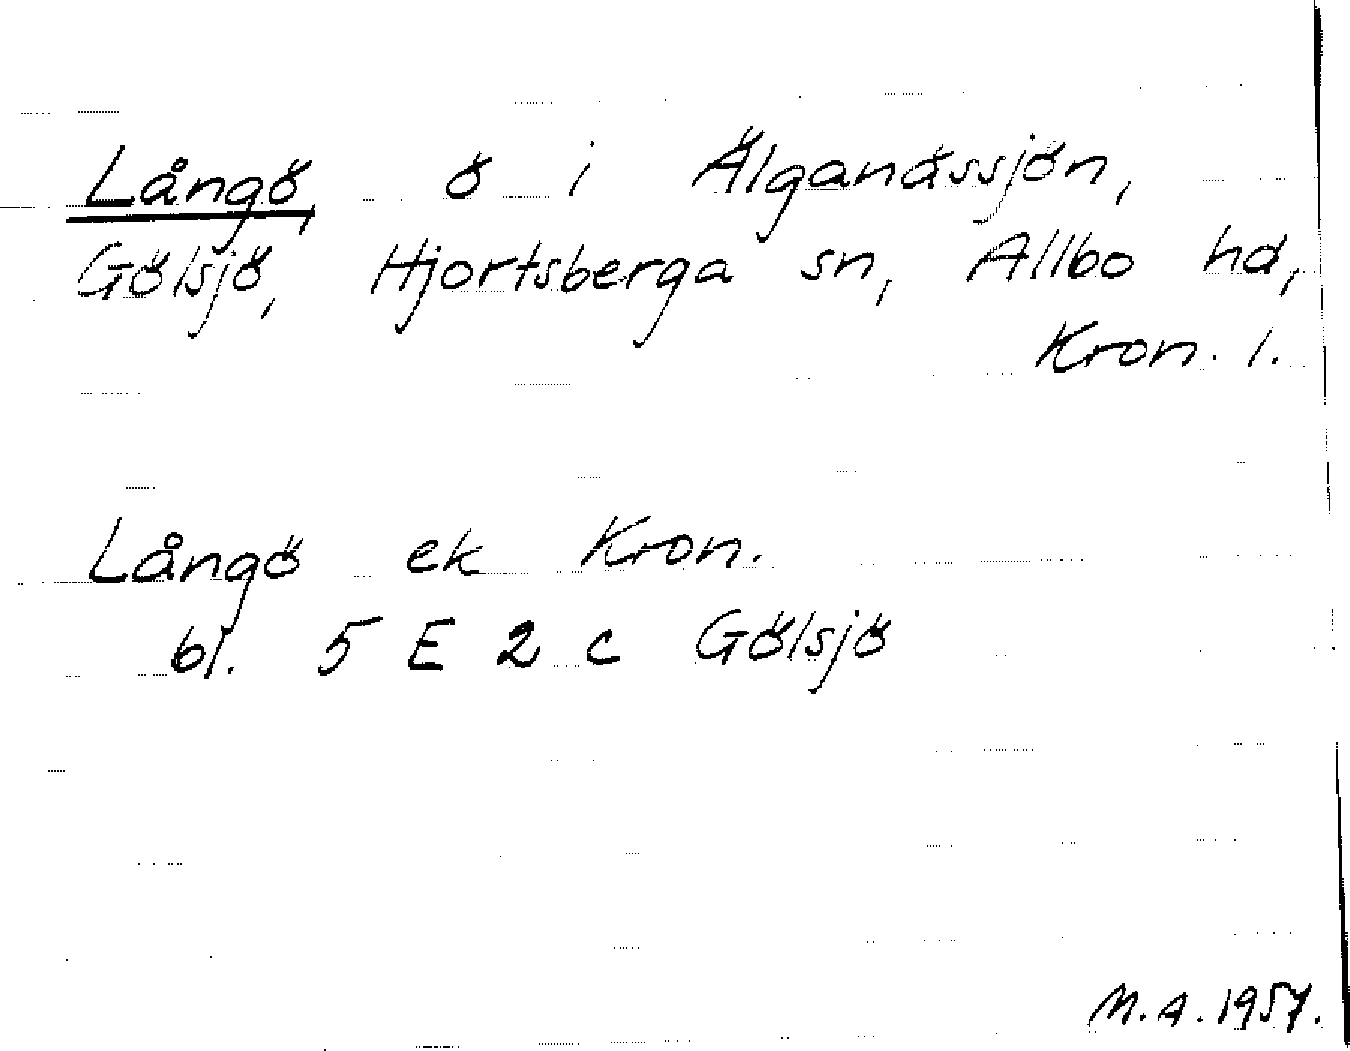 Långö, ö i Älganässjön,
Gölsjö, Hjortsberga sn, Allbo hd,
Kron. l.
Långö ek Kron.
bl. 5 E 2 c Gölsjö
M.A. 1957.